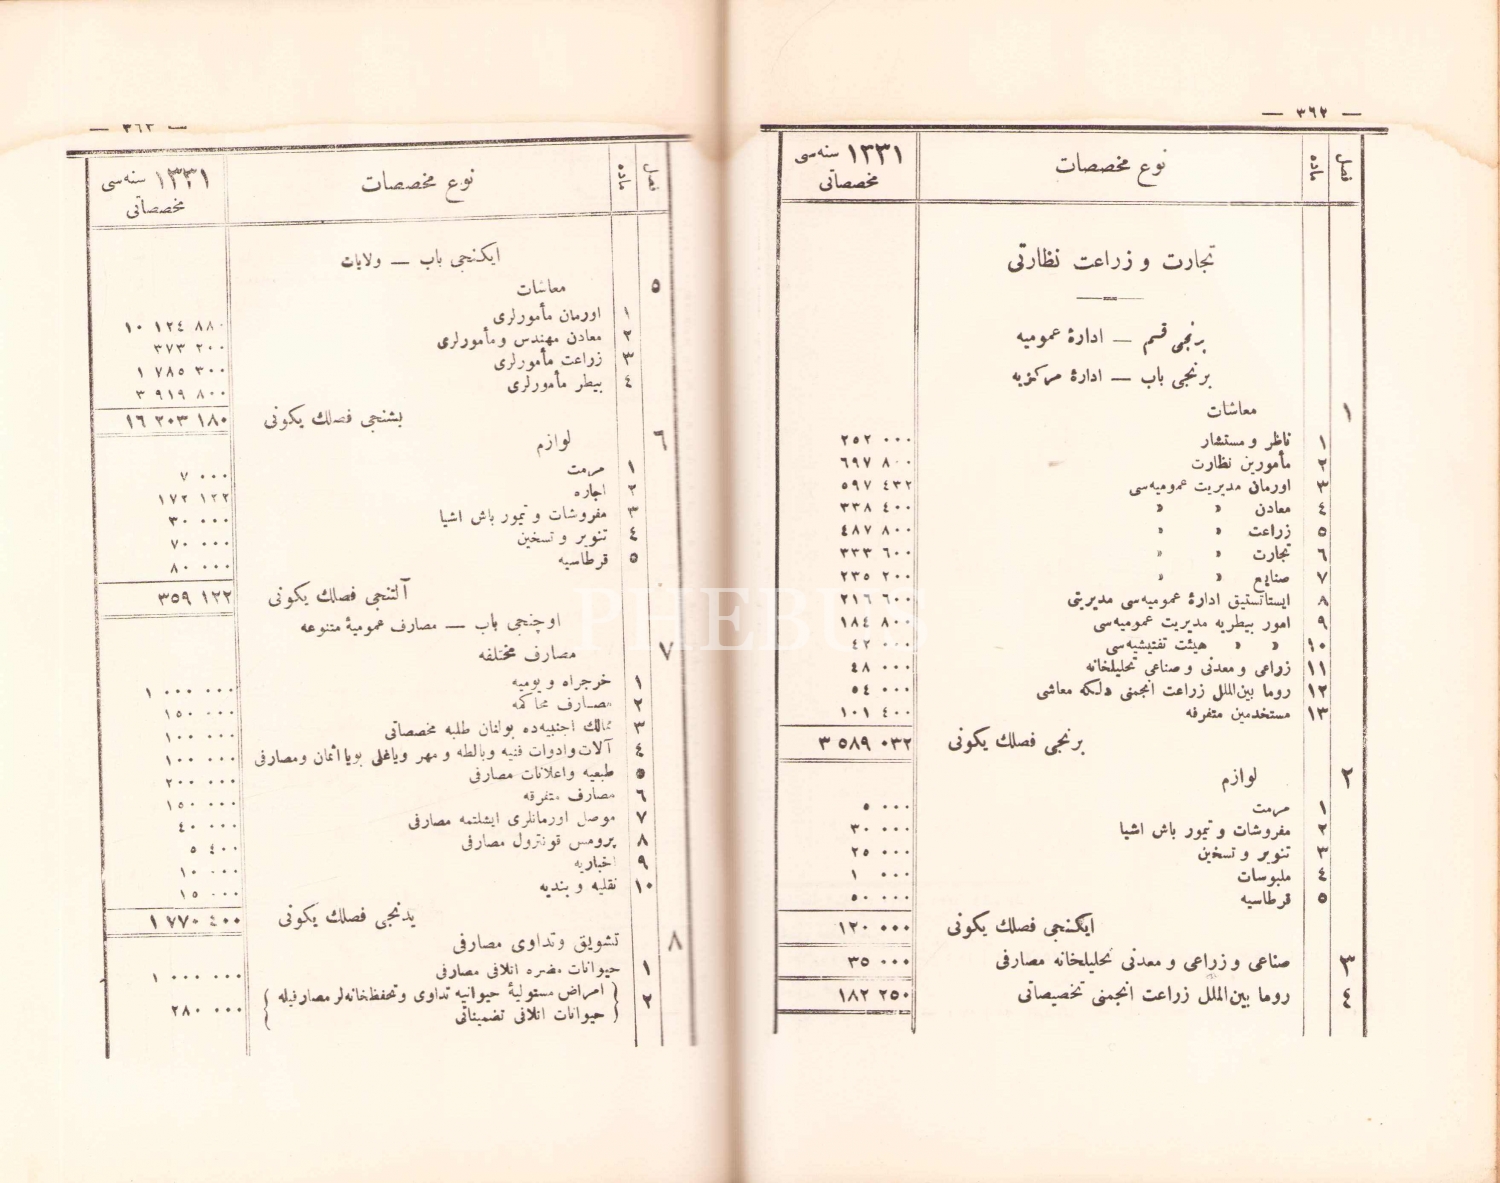 — ٣٦٢ —
فصل ماده نوع مخصصات ١٣٣١ سنه‌سی مخصصاتی
تجارت و زراعت نظارتی
برنجی قسم — ادارهٔ عمومیه
برنجی باب — ادارهٔ مرکزیه
١ معاشات
١ ناظر و مستشار ٢٥٢ ٠٠٠
٢ مأمورین نظارت ٦٩٧ ٨٠٠
٣ اورمان مدیریت عمومیه‌سی ٥٩٧ ٤٣٢
٤ معادن » » ٣٣٨ ٤٠٠
٥ زراعت » » ٤٨٧ ٨٠٠
٦ تجارت » » ٣٣٣ ٦٠٠
٧ صنایع » » ٢٣٥ ٢٠٠
٨ ایستاتستیق ادارهٔ عمومیه‌سی مدیریتی ٢١٦ ٦٠٠
٩ امور بیطریه مدیریت عمومیه‌سی ١٨٤ ٨٠٠
١٠ » » هیئت تفتیشیه‌سی ٤٢ ٠٠٠
١١ زراعی و معدنی و صناعی تحلیلخانه ٤٨ ٠٠٠
١٢ روما بین‌الملل زراعت انجمنی دلکه معاشی ٥٤ ٠٠٠
١٣ مستخدمین متفرقه ١٠١ ٤٠٠
برنجی فصلك یکونی ٣ ٥٨٩ ٠٣٢
٢ لوازم
١ مرمت ٥ ٠٠٠
٢ مفروشات و تیمور باش اشیا ٣٠ ٠٠٠
٣ تنویر و تسخین ٢٥ ٠٠٠
٤ ملبوسات ١ ٠٠٠
٥ قرطاسیه ٥٠ ٠٠٠
ایکنجی فصلك یکونی ١٢٠ ٠٠٠
٣ صناعی و زراعی و معدنی تحلیلخانه مصارفی ٣٥ ٠٠٠
٤ روما بین‌الملل زراعت انجمنی تخصیصاتی ١٨٢ ٢٥٠
— ٣٦٣ —
فصل ماده نوع مخصصات ١٣٣١ سنه‌سی مخصصاتی
ایکنجی باب — ولایات
٥ معاشات
١ اورمان مأمورلری ١٠ ١٢٤ ٨٨٠
٢ معادن مهندس و مأمورلری ٣٧٣ ٢٠٠
٣ زراعت مأمورلری ١ ٧٨٥ ٣٠٠
٤ بیطر مأمورلری ٣ ٩١٩ ٨٠٠
بشنجی فصلك یکونی ١٦ ٢٠٣ ١٨٠
٦ لوازم
١ مرمت ٧ ٠٠٠
٢ اجاره ١٧٢ ١٢٢
٣ مفروشات و تیمور باش اشیا ٣٠ ٠٠٠
٤ تنویر و تسخین ٧٠ ٠٠٠
٥ قرطاسیه ٨٠ ٠٠٠
آلتنجی فصلك یکونی ٣٥٩ ١٢٢
اوچنجی باب — مصارف عمومیهٔ متنوعه
٧ مصارف مختلفه
١ خرجراه و یومیه ١ ٠٠٠ ٠٠٠
٢ مصارف محاکمه ١٥٠ ٠٠٠
٣ ممالك اجنبیه‌ده بولنان طلبه مخصصاتی ١٠٠ ٠٠٠
٤ آلات و ادوات فنیه و بالطه و مهر و یاغلی بویا اثمان و مصارفی ١٠٠ ٠٠٠
٥ طبعیه و اعلانات مصارفی ٢٠٠ ٠٠٠
٦ مصارف متفرقه ١٥٠ ٠٠٠
٧ موصل اورمانلری ایشلتمه مصارفی ٤٠ ٠٠٠
٨ پرومس قونترول مصارفی ٥ ٤٠٠
٩ اخباریه ١٠ ٠٠٠
١٠ نقلیه و بندیه ١٥ ٠٠٠
یدنجی فصلك یکونی ١ ٧٧٠ ٤٠٠
٨ تشویق و تداوی مصارفی
١ حیوانات مضره اتلافی مصارفی ١ ٠٠٠ ٠٠٠
٢ امراض مستولیهٔ حیوانیه تداوی و تحفظخانه‌لر مصارفیله
حیوانات اتلافی تضمیناتی ٢٨٠ ٠٠٠
PHEBUS